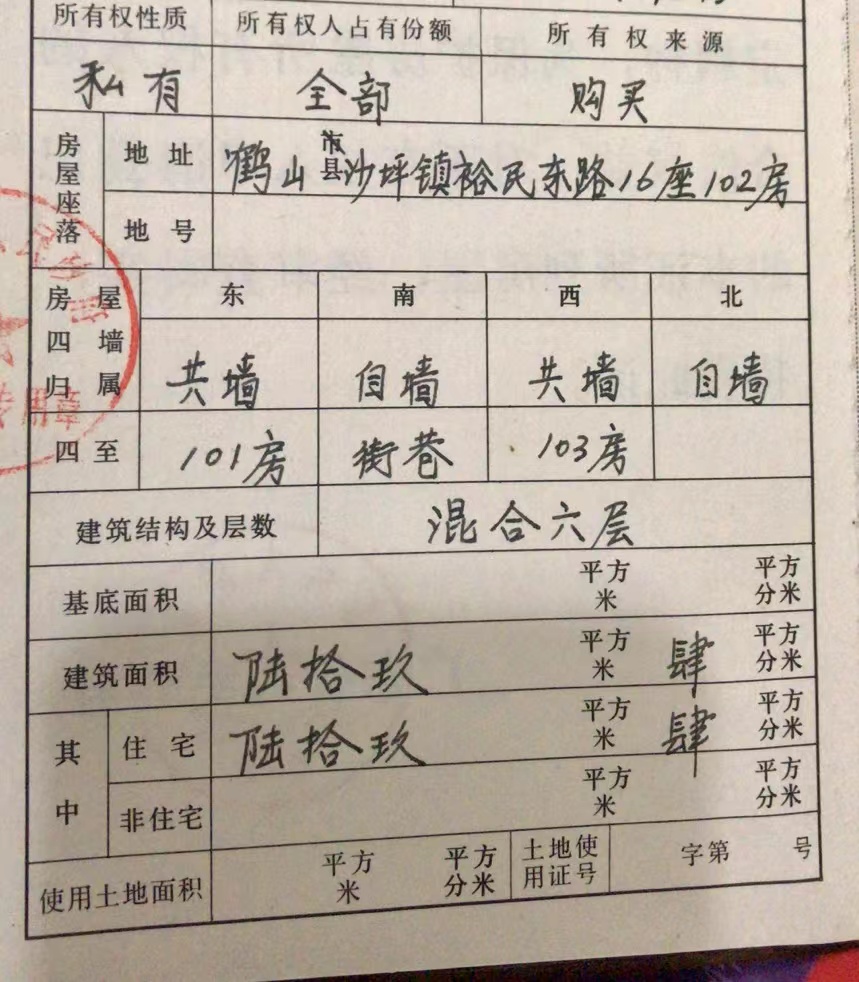 所有权性质 所有权人占有份额 所有权来源
私有 全部 购买
房屋座落 地址 鹤山市县沙坪镇裕民东路16座102房
地号
房屋四墙归属 东 南 西 北
共墙 自墙 共墙 自墙
四至 101房 街巷 103房
建筑结构及层数 混合六层
基底面积 平方米 平方分米
建筑面积 陆拾玖 平方米 肆 平方分米
其中 住宅 陆拾玖 平方米 肆 平方分米
非住宅 平方米 平方分米
使用土地面积 平方米 平方分米 土地使用证号 字第 号
专用章